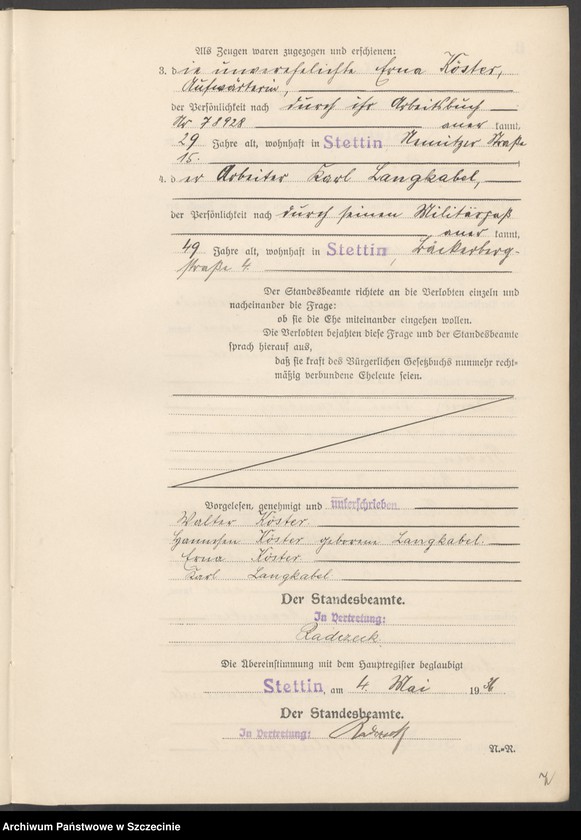 Als Zeugen waren zugezogen und erschienen:
3. die unverehelichte Erna Köster,
Aufwärterin,
der Persönlichkeit nach durch ihr Arbeitsbuch
Nr 78928 aner kannt,
29 Jahre alt, wohnhaft in Stettin Nemitzer Straße
15.
4. der Arbeiter Karl Langkabel,
der Persönlichkeit nach durch seinen Militärpaß
aner kannt,
49 Jahre alt, wohnhaft in Stettin, Bäckerberg-
straße 4.
Der Standesbeamte richtete an die Verlobten einzeln und
nacheinander die Frage:
ob sie die Ehe miteinander eingehen wollen.
Die Verlobten bejahten diese Frage und der Standesbeamte
sprach hierauf aus,
daß sie kraft des Bürgerlichen Gesetzbuchs nunmehr recht-
mäßig verbundene Eheleute seien.
Vorgelesen, genehmigt und unterschrieben
Walter Köster.
Köster geborene Langkabel.
Erna Köster
Karl Langkabel
Der Standesbeamte.
In Vertretung:
Radezeck.
Die Übereinstimmung mit dem Hauptregister beglaubigt
Stettin, am 4. Mai 1936
Der Standesbeamte.
In Vertretung:
N.-R.
Archiwum Państwowe w Szczecinie